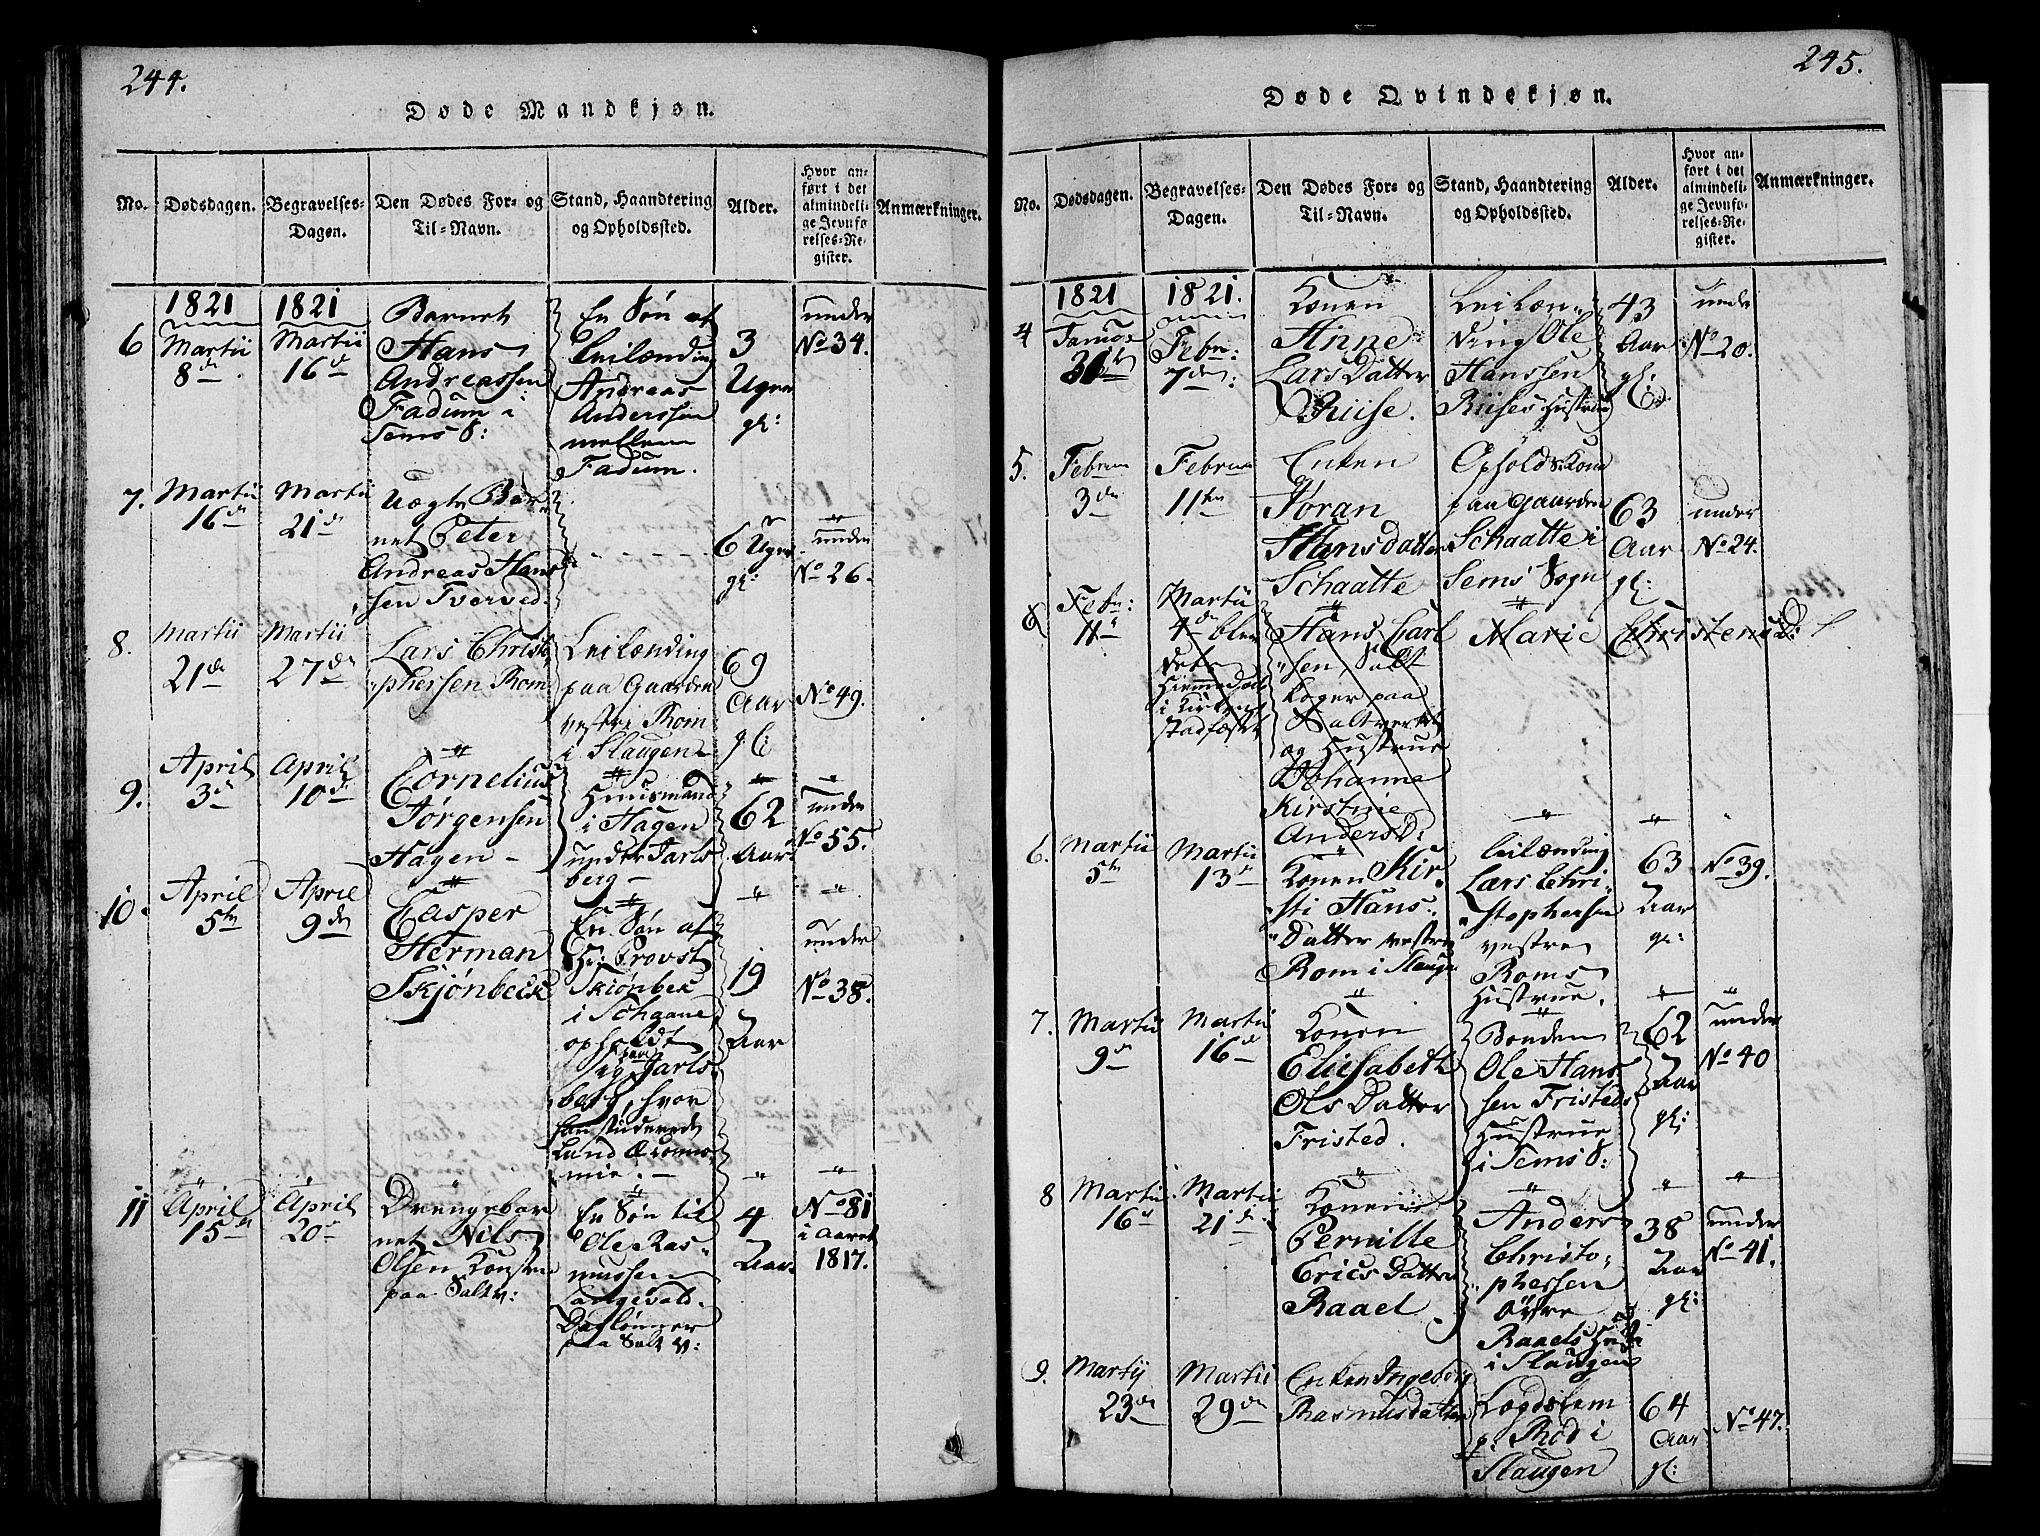 244.
Døde Mandkjøn.
No.
Dødsdagen.
Begravelses-
Dagen.
Den Dødes For- og
Til-Navn.
Stand, Haandtering
og Opholdssted.
Alder.
Hvor an-
ført i det
almindeli-
ge Jevnfø-
relses-Re-
gister.
Anmærkninger.
1821
1821
6
Martii
8de
Martii
16d
Barnet
Hans
Andreassen
Fadum i
Sems S:
En Søn af
Leilænding
Andreas
Anderssen
mellem
Fadum.
3
Uger
gl:
under
No 34.
7.
Martii
16de
Martii
21de
Uægte Bar-
net Peter
Andreas Hans-
sen Tverved.
6 Uger
gl:
under
No 26.
8.
Martii
21de
Martii
27de
Lars Christo-
phersen Rom
Leilænding
paa Gaarden
vestre Rom
i Slaugen
69
Aar
gl:
No 49.
9.
April
3de
April
10de
Cornelius
Jørgensen
Hagen -
Huusmand
i Hagen
under Jarls-
berg -
62
Aar
under
No 55.
10.
April
5te
April
9de
Casper
Herman
Skjönbeck
En Søn af
Hr: Provst
Skiönbek
i Schgane
opholdt
sig paa Jarls-
berg, hvor
han studerede
Land Oeconno-
mie. -
19
Aar
under
No 38.
11
April
15de
April
20de
Drengebar
net Nils
Olsen Langev
paa Saltv:
En Søn til
Ole Ras-
mussen
Langevald.
Daglønner
paa Salt V:
4
Aar
No 81
i Aaret
1817.
245.
Døde Qvindekjøn.
No.
Dødsdagen.
Begravelses-
Dagen.
Den Dødes For- og
Til-Navn.
Stand, Haandtering
og Opholdssted.
Alder.
Hvor an-
ført i det
almindeli-
ge Jevnfø-
relses-Re-
gister.
Anmærkninger.
1821
1821.
4
Januar
31te
Febr:
7den:
Konen
Anne
Lars Datter
Riise.
Leilæn-
ding Ole
Hanssen
Riises Hustrue
43
Aar
gl:
under
No 20.
5.
Februar
3de
Februar
11te
Enken
Jøran
Hansdatter
Schaatte
Ophold s: Kone
paa Gaarden
Schaatte i
Sems Sogn
63
Aar
gl:
under
No 24.
6
Febr:
11te
Martii
4de blev
dets
Hiemmedaab
i Kirken
stadfæstet
Hans Carl-
sen, Salt
koger paa
Saltverket
og Hustrue
Johanne
Kirstine
Andersd:
Marie
Christensd:
6.
Martii
5te
Martii
13de
Konen Kir-
sti Hans-
Datter vestre
Rom i Slaugen
Leilænding
Lars Chri-
stophersen
vestre
Roms
Hustrue.
63
Aar
gl:
No 39.
7.
Martii
9de
Martii
16de
Konen
Elisabeth
Ols Datter
Fristed.
Bonden
Ole Hans
sen Fristeds
Hustrue
i Sems S:
62
Aar
gl:
under
No 40
8
Martii
16de
Martii
21de
Konen
Pernille
Erics Datter
Raael
Anders
Christo-
phersen
øvre
Raaels Hustr
i Slaugen
38
Aar
gl:
under
No 41.
9.
Martij
23de
Martii
29de
Enken Ingeborg
Rasmusdatter
Lægdslem
p: Rød i
Slaugen
64
Aar
gl:
No 47.